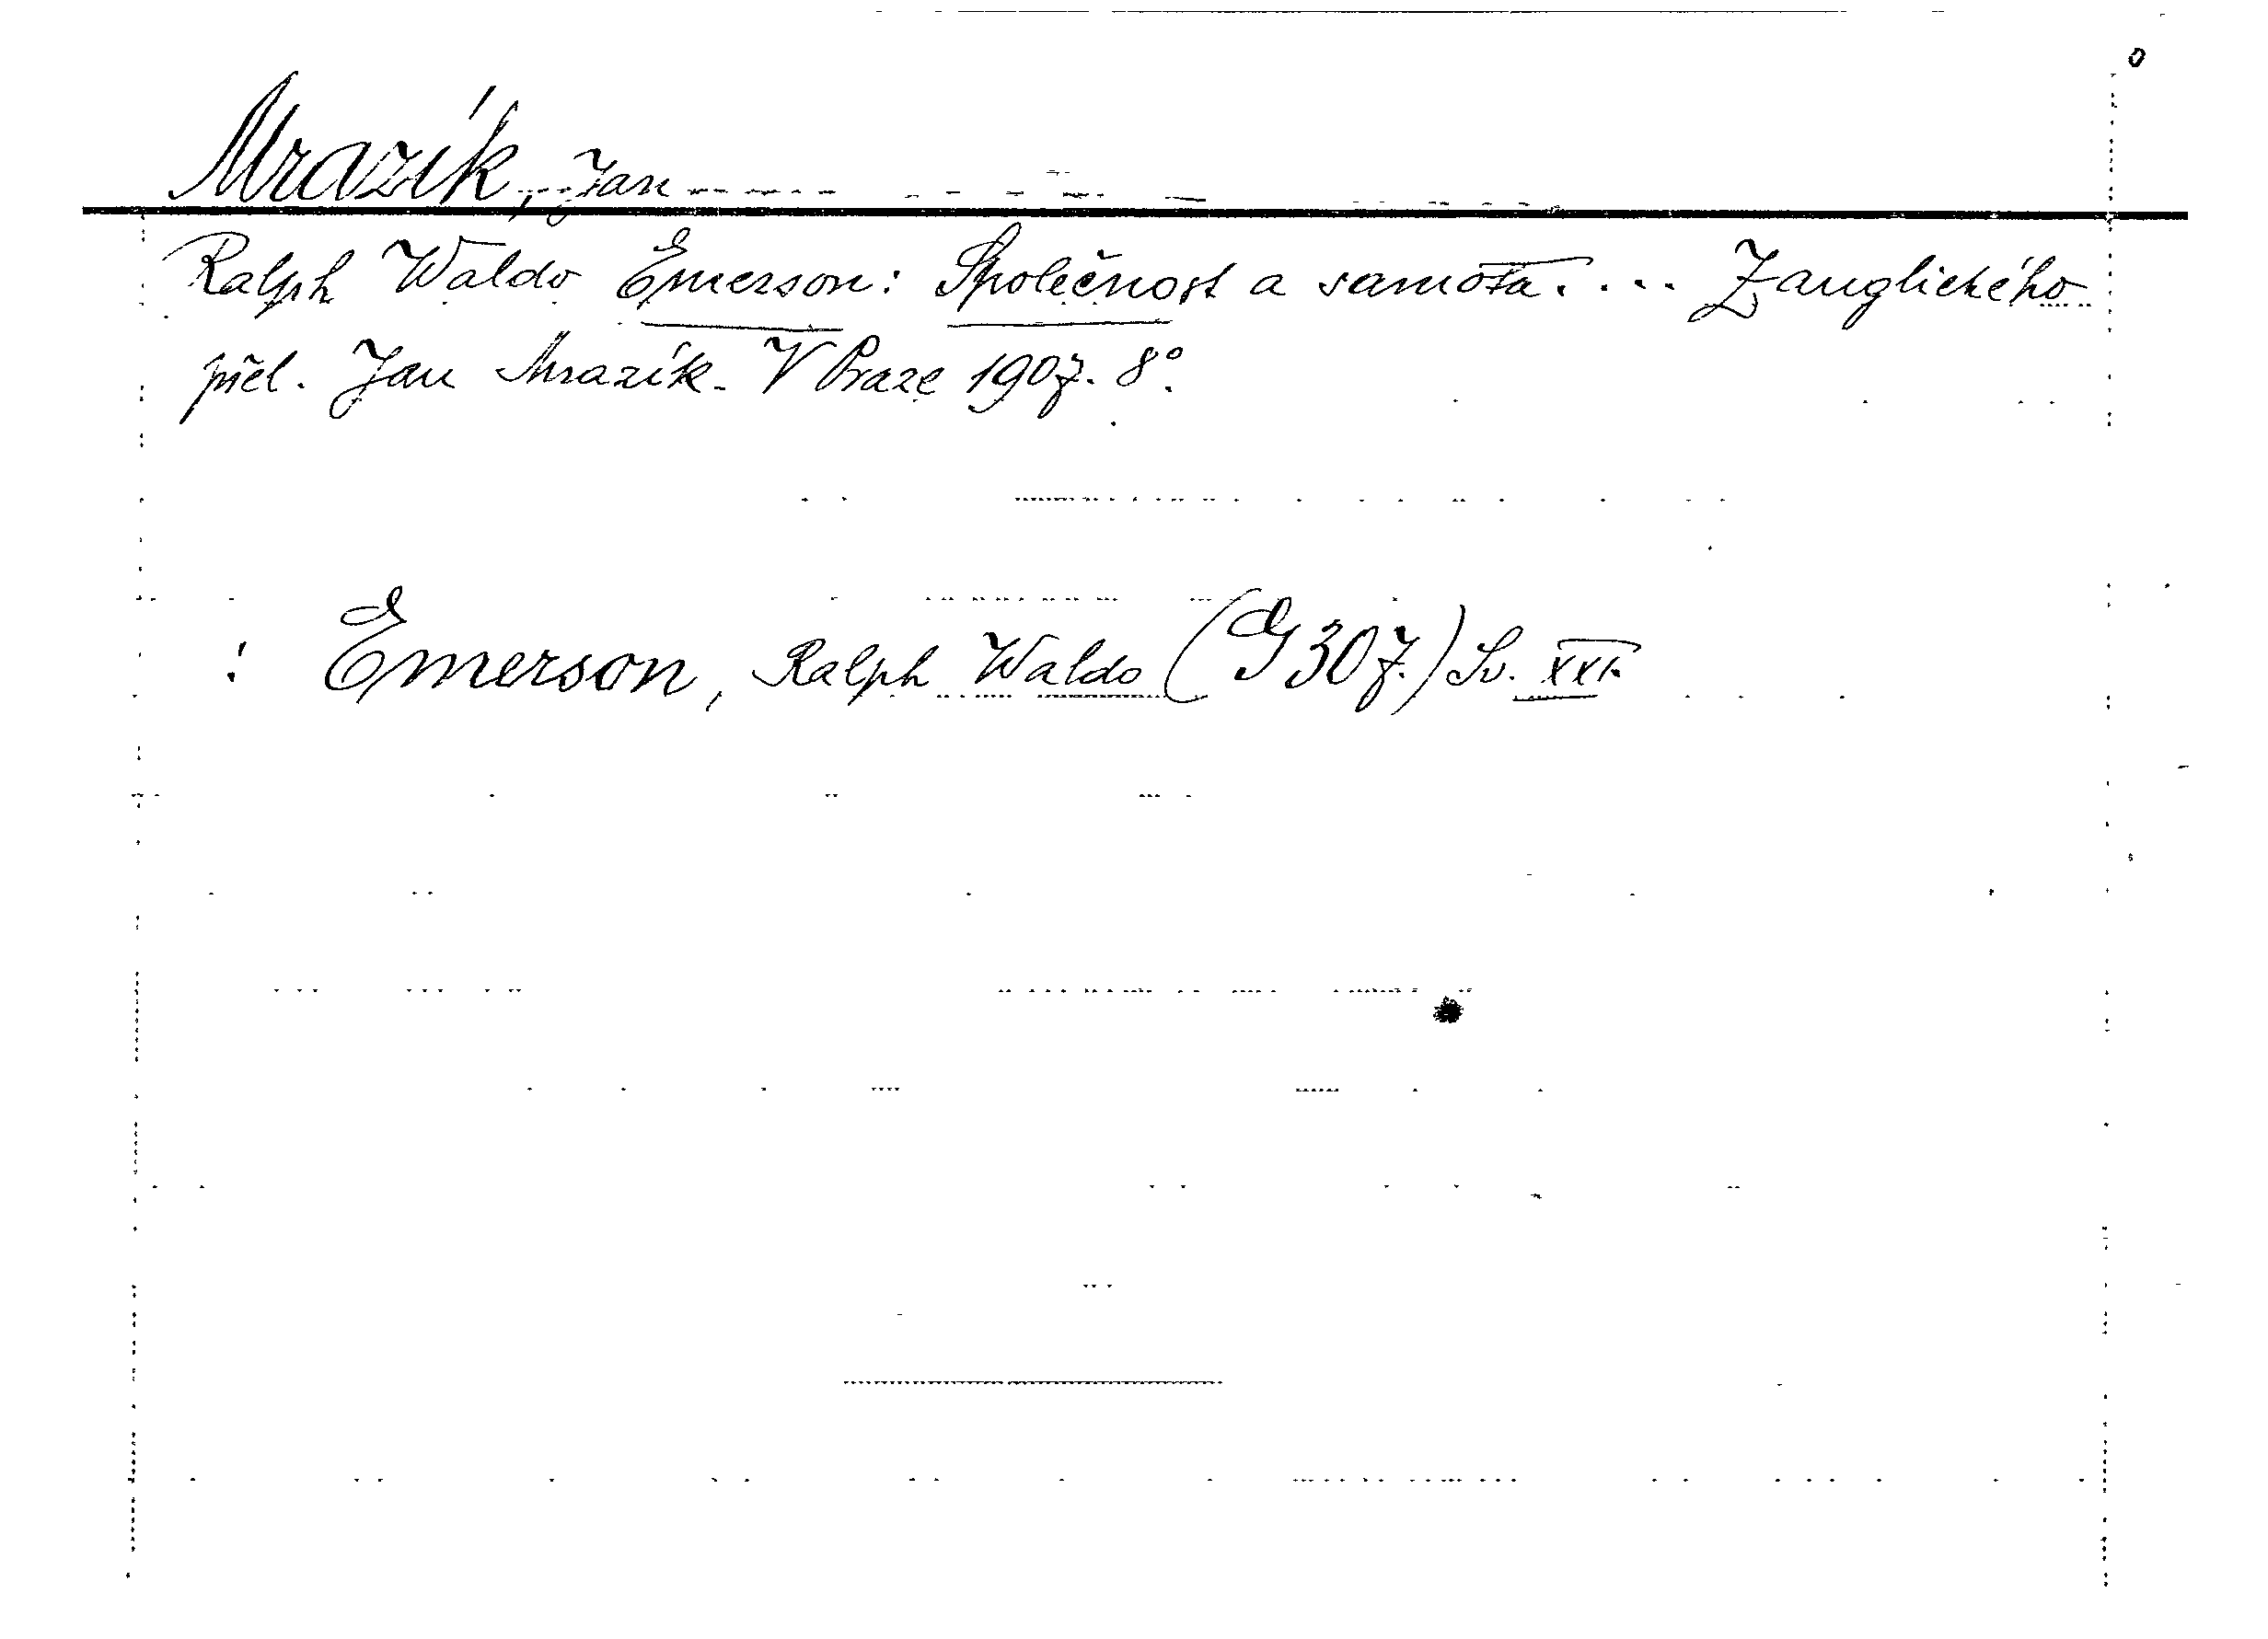 Mrazík, Jan
Ralph Waldo Emerson: Společnost a samota. ... Z anglického
přel. Jan Mrazík. V Praze 1907. 8°.
: Emerson, Ralph Waldo (G 307.) Sv. XXI.